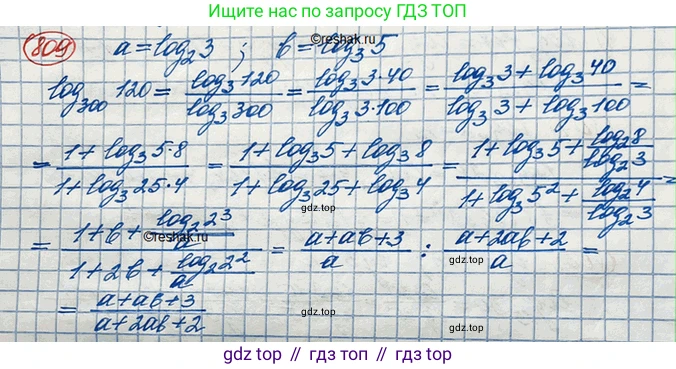 Ищите нас по запросу ГДЗ ТОП
809 a = log₂3 ; b = log₃5
©reshak.ru
log₃₀₀ 120 = log₃120 / log₃300 = log₃3·40 / log₃3·100 = (log₃3 + log₃40) / (log₃3 + log₃100) =
= (1 + log₃5·8) / (1 + log₃25·4) = (1 + log₃5 + log₃8) / (1 + log₃25 + log₃4) = (1 + log₃5 + log₂8 / log₂3) / (1 + log₃5² + log₂4 / log₂3) =
gdz.top
= (1 + b + log₂2³ / a) / (1 + 2b + log₂2² / a) = (a + ab + 3) / a : (a + 2ab + 2) / a =
©reshak.ru
gdz.top
= (a + ab + 3) / (a + 2ab + 2)
gdz.top
gdz.top
gdz top // гдз топ // gdz top // гдз топ